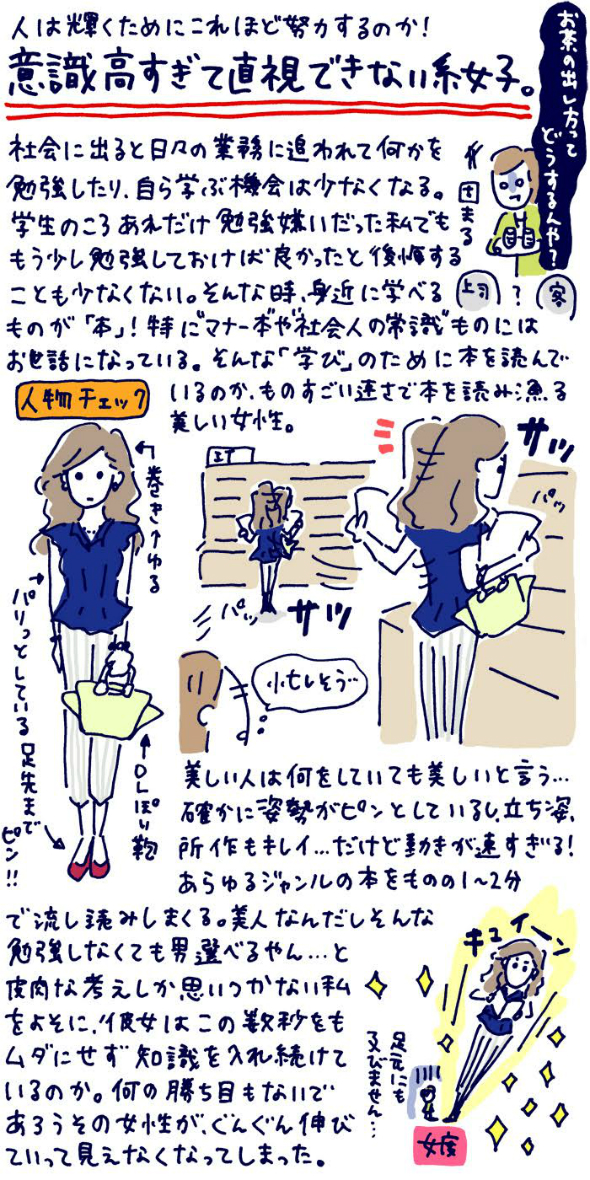 人は輝くためにこれほど努力するのか!
意識高すぎて直視できない系女子。
お茶の出し方って
どうするんや?
社会に出ると日々の業務に追われて何かを
勉強したり、自ら学ぶ機会は少なくなる。
学生のころあれだけ勉強嫌いだった私でも
もう少し勉強しておけば良かったと後悔する
ことも少なくない。そんな時、身近に学べる
ものが「本」!特に"マナー本"や"社会人の常識"ものには
お世話になっている。そんな「学び」のために本を読んで
いるのか、ものすごい速さで本を読み漁る
美しい女性。
固まる
上司
?
客
人物チェック
巻きゆる
パリっとしている
足先まで
ピン!!
OLぽい鞄
サッ
パッ
パッ
サッ
忙しそう…
美しい人は何をしていても美しいと言う…
確かに姿勢がピンとしているし、立ち姿、
所作もキレイ…だけど動きが速すぎる!
あらゆるジャンルの本をものの1〜2分
で流し読みしまくる。美人なんだしそんな
勉強しなくても男選べるやん…と
皮肉な考えしか思いつかない私
をよそに、彼女はこの数秒をも
ムダにせず知識を入れ続けて
いるのか。何の勝ち目もないで
あろうその女性が、ぐんぐん伸び
ていって見えなくなってしまった。
キュイーン
足元にも
及びません…